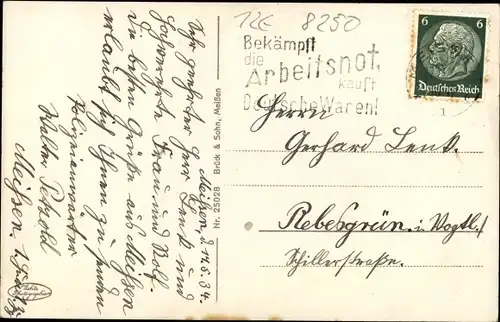 12E 8250
Bekämpft
die
Arbeitsnot,
kauft
Deutsche Waren!
6 6
Deutsches Reich
Herrn
Gerhard Lenk.
Rebesgrün i. Vogtl.
Schillerstraße.
Nr. 25028 Brück & Sohn, Meißen
Meißen, d. 14.5.34.
Sehr geehrter Herr Lenk und
Frau u. Rolf.
Die besten Grüße aus Meißen
erlaubt sich Ihnen zu senden
Polizeianwärter
Walter Petzold
Meißen.